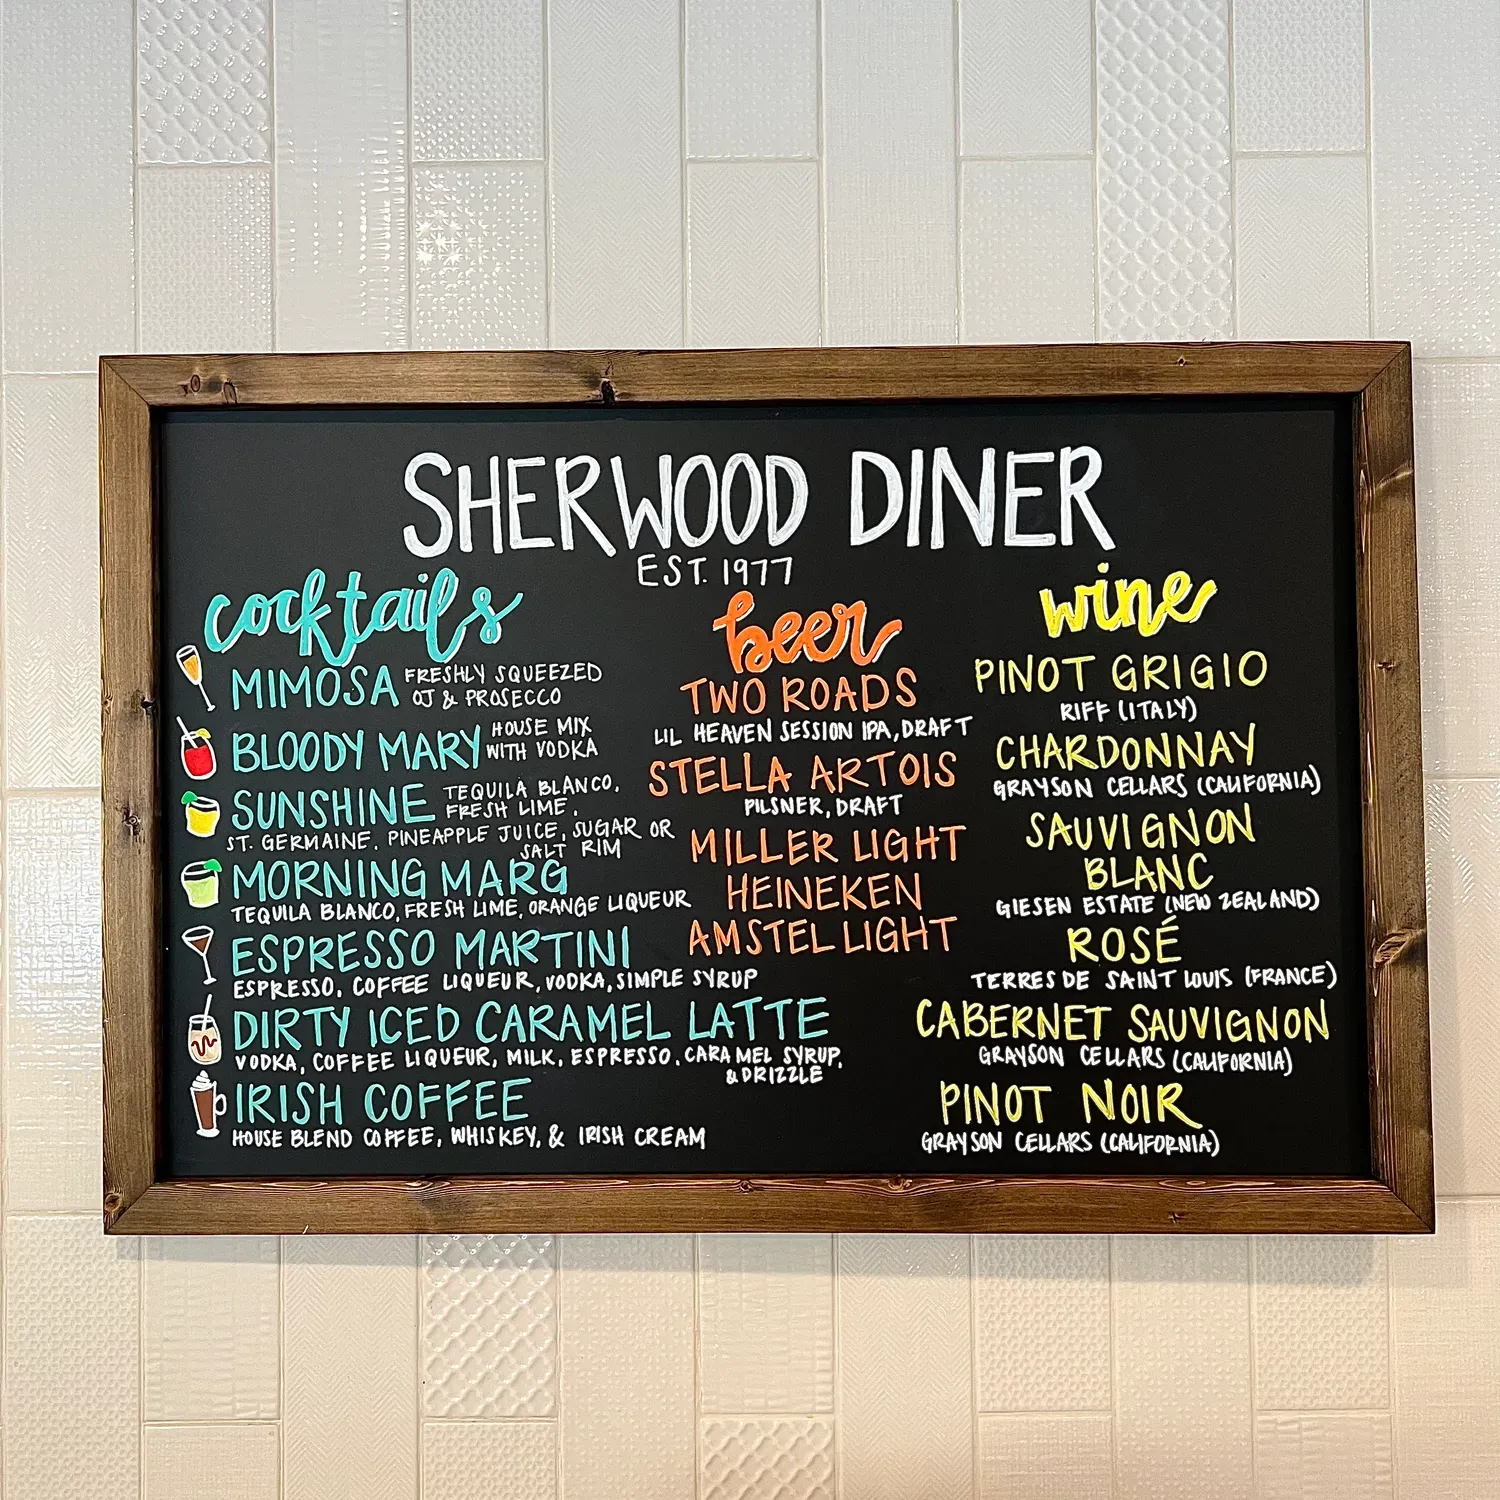 SHERWOOD DINER
EST. 1977
cocktails
MIMOSA FRESHLY SQUEEZED
OJ & PROSECCO
BLOODY MARY HOUSE MIX
WITH VODKA
SUNSHINE TEQUILA BLANCO,
FRESH LIME,
ST. GERMAINE, PINEAPPLE JUICE, SUGAR OR
SALT RIM
MORNING MARG
TEQUILA BLANCO, FRESH LIME, ORANGE LIQUEUR
ESPRESSO MARTINI
ESPRESSO, COFFEE LIQUEUR, VODKA, SIMPLE SYRUP
DIRTY ICED CARAMEL LATTE
VODKA, COFFEE LIQUEUR, MILK, ESPRESSO, CARAMEL SYRUP,
& DRIZZLE
IRISH COFFEE
HOUSE BLEND COFFEE, WHISKEY, & IRISH CREAM
beer
TWO ROADS
LIL HEAVEN SESSION IPA, DRAFT
STELLA ARTOIS
PILSNER, DRAFT
MILLER LIGHT
HEINEKEN
AMSTEL LIGHT
wine
PINOT GRIGIO
RIFF (ITALY)
CHARDONNAY
GRAYSON CELLARS (CALIFORNIA)
SAUVIGNON
BLANC
GIESEN ESTATE (NEW ZEALAND)
ROSÉ
TERRES DE SAINT LOUIS (FRANCE)
CABERNET SAUVIGNON
GRAYSON CELLARS (CALIFORNIA)
PINOT NOIR
GRAYSON CELLARS (CALIFORNIA)